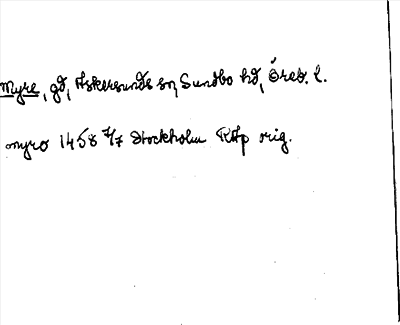 Myre, gd, Askersunds sn, Sundbo hd, Öreb. l.
myro 1458 7/7 Stockholm RAp orig.